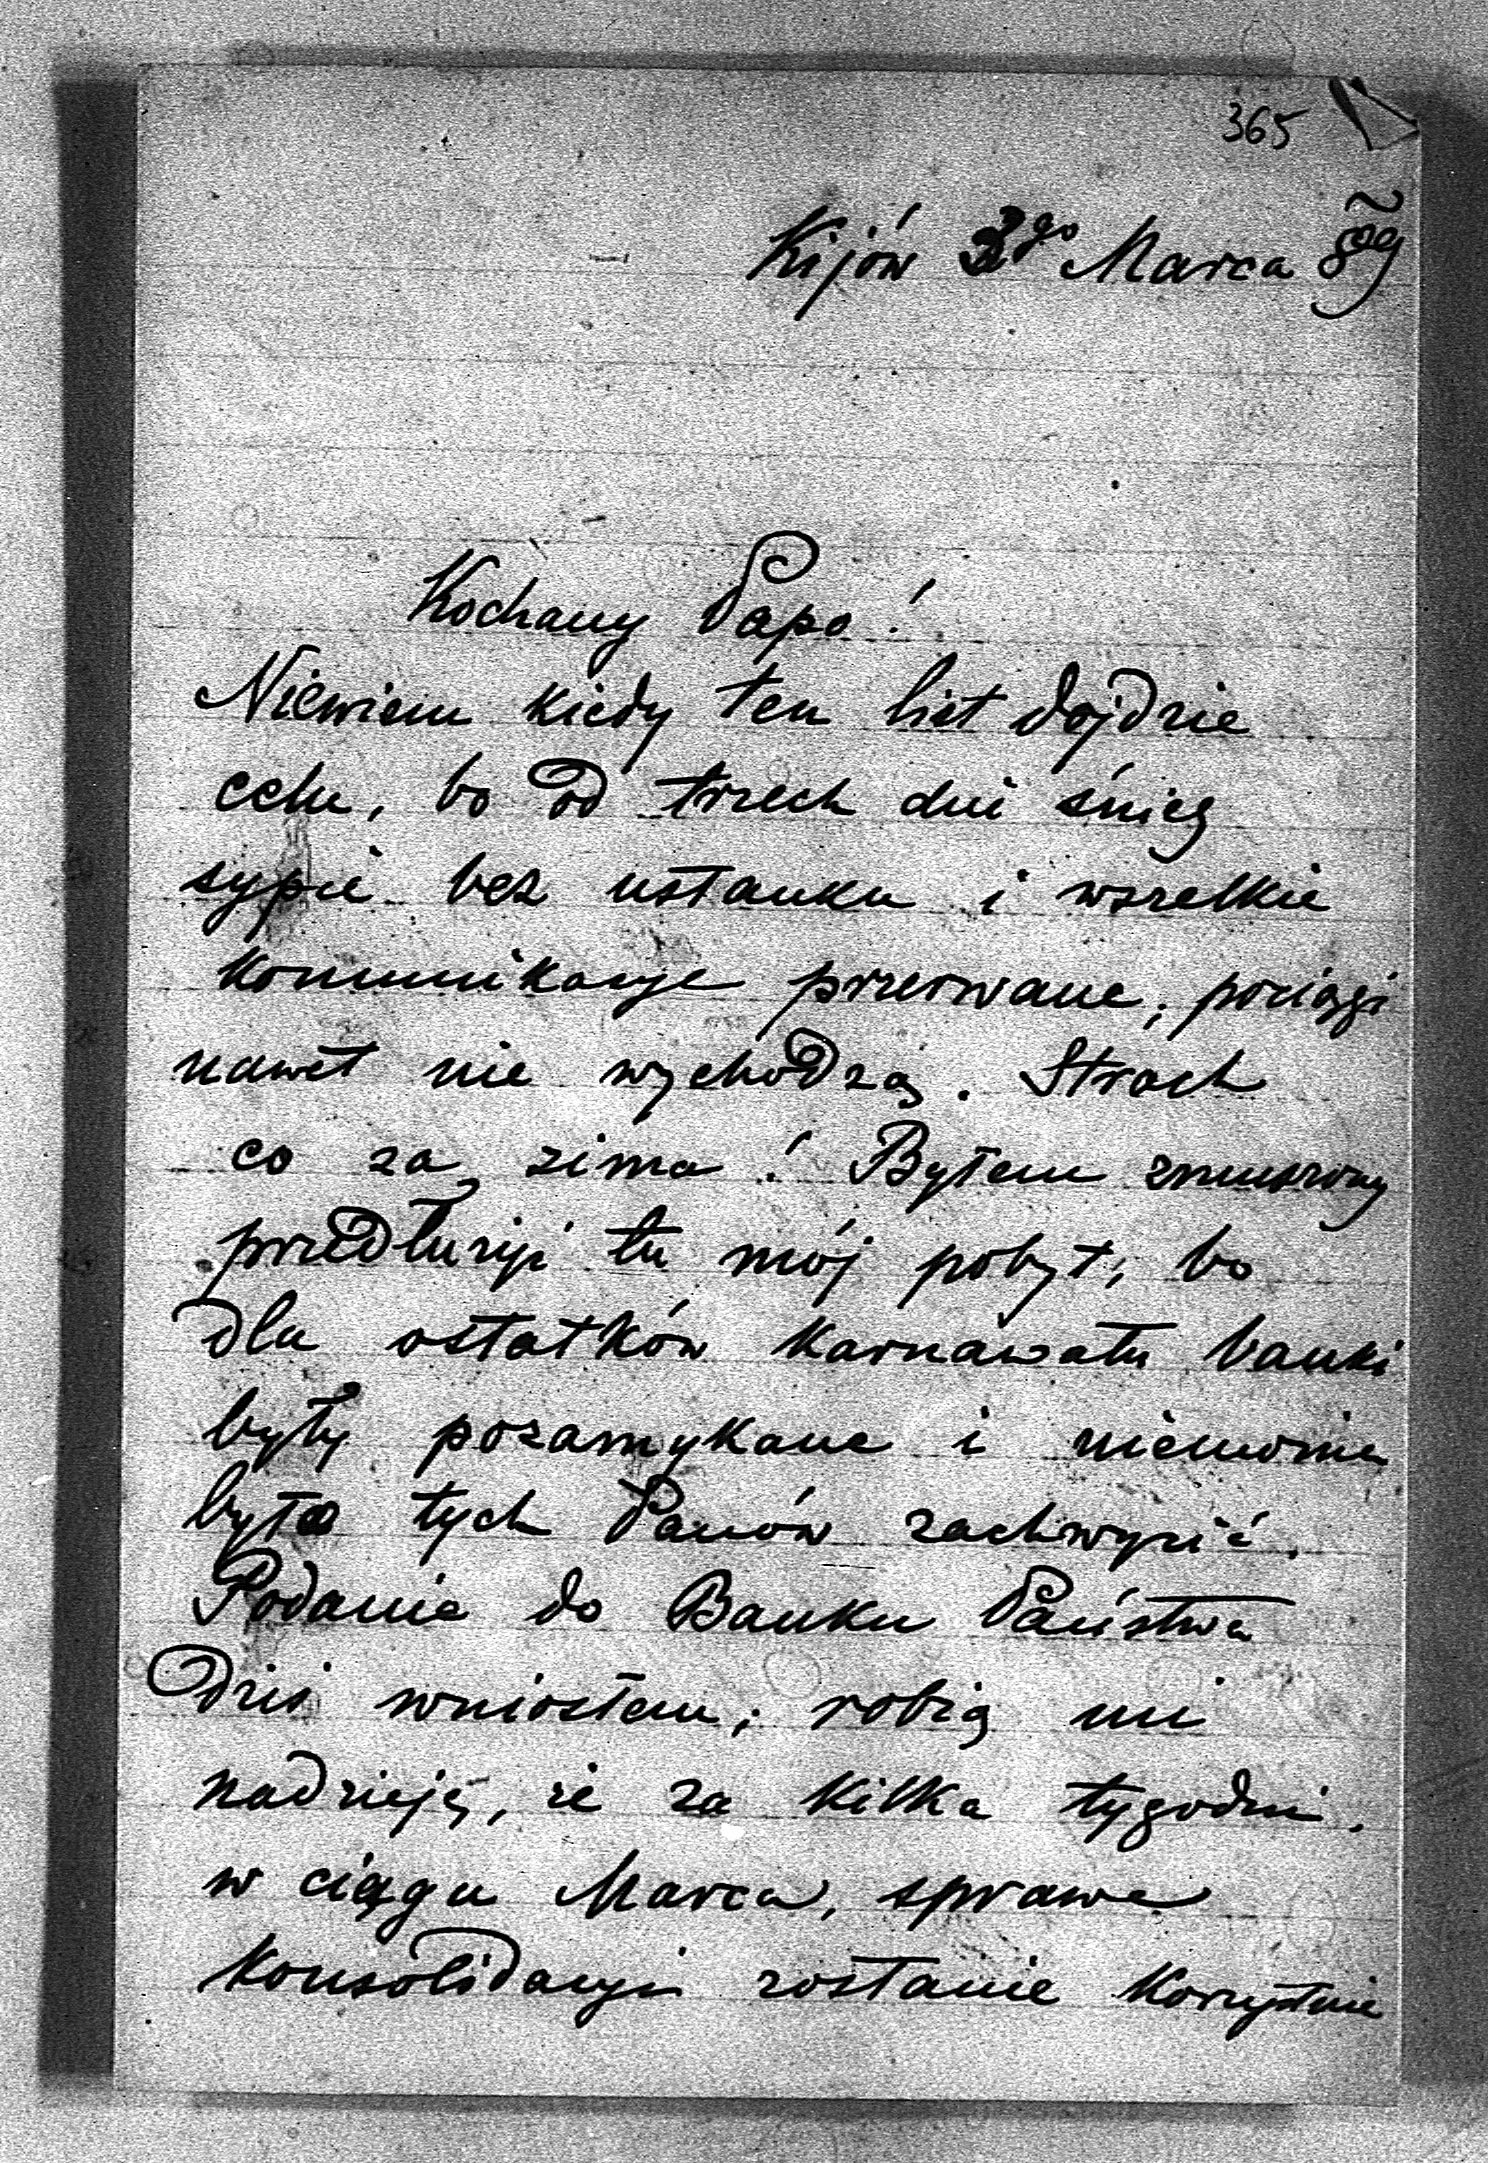 365
Kijów 3go Marca 89
Kochany Papo!
Niewiem kiedy ten list dojdzie
celu, bo od trzech dni śnieg
sypie bez ustanku i wszelkie
komunikacye przerwane, pociągi
nawet nie wychodzą. Strach
co za zima! Byłem zmuszony
przedłużyć tu mój pobyt, bo
dla ostatków karnawału banki
były pozamykane i niemożna
było tych Panów zachwycić.
Podanie do Banku Państwa
dziś wniosłem, robią mi
nadzieję, że za kilka tygodni,
w ciągu Marca, sprawa
konsolidacyi zostanie korzystnie